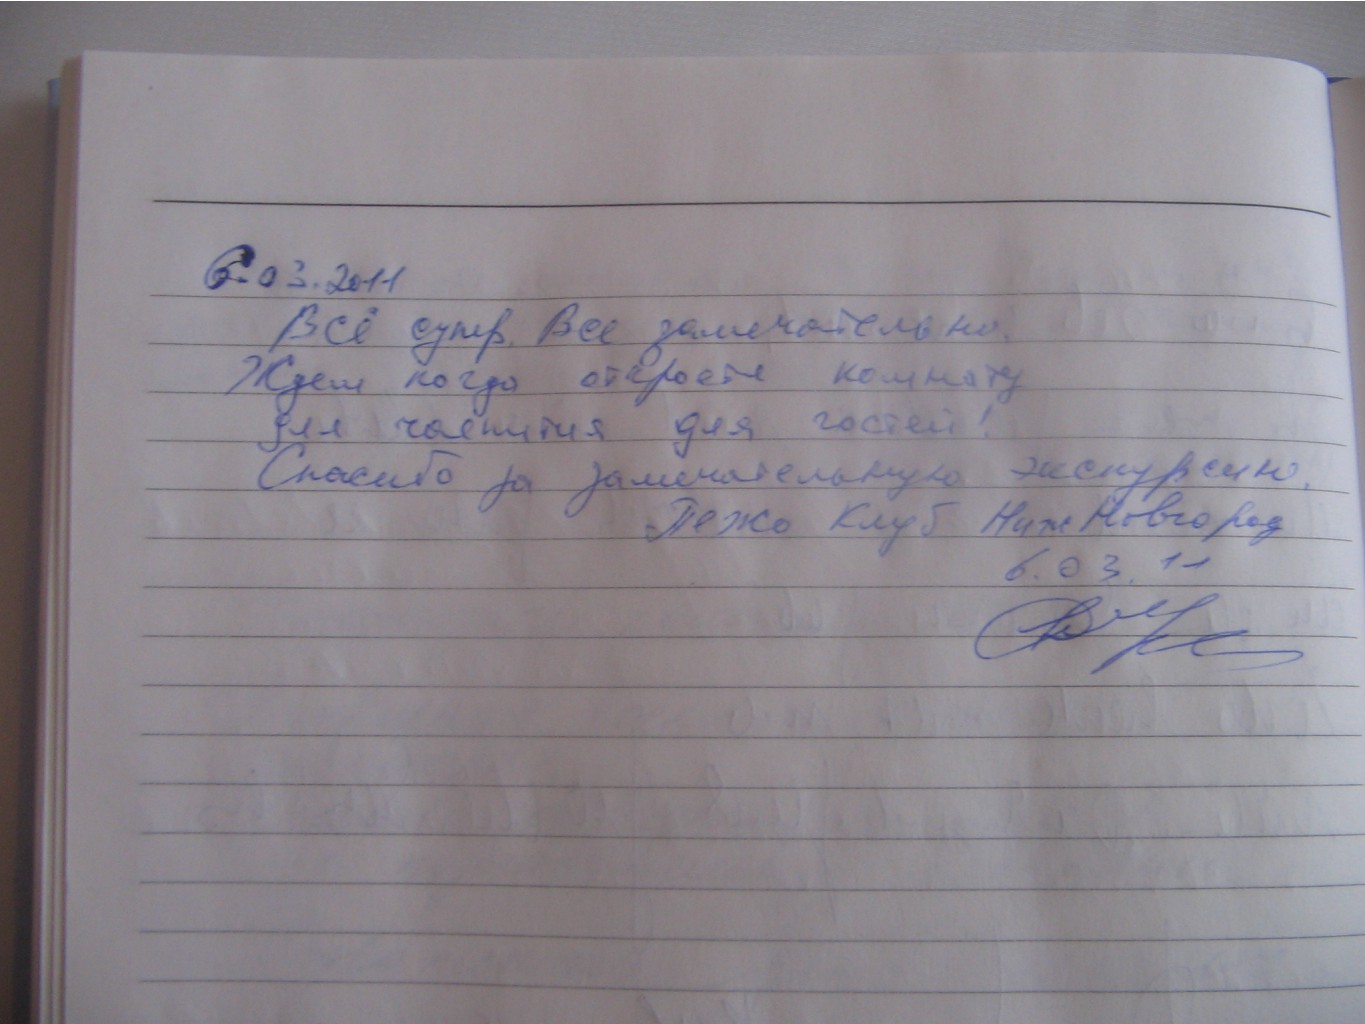 6.03.2011
Всё супер. Все замечательно.
Ждем когда откроете комнату
для чаепития для гостей!
Спасибо за замечательную экскурсию.
Пежо Клуб Ниж Новгород
6.03.11